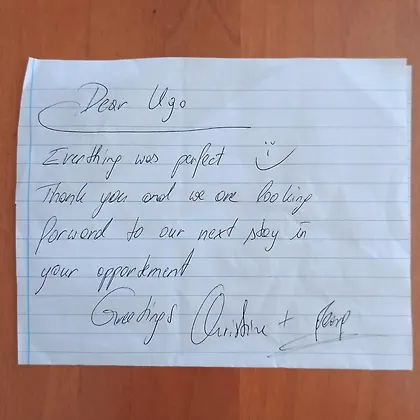 Dear Ugo
Everthing was perfect
Thank you and we are looking
forward to our next stay in
your appordement
Greetings Christine +